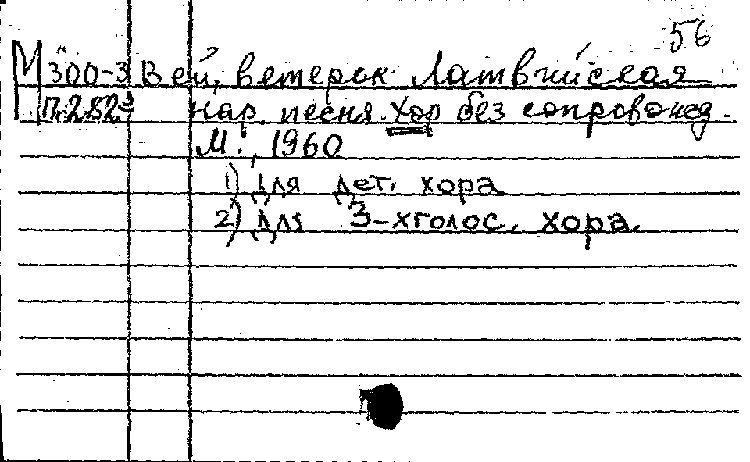 56
М 300-3 Вей, ветерок. Латвийская
П.282³ нар. песня. Хор без сопровожд.
М., 1960
1) для дет. хора
2) для 3-хголос. хора.